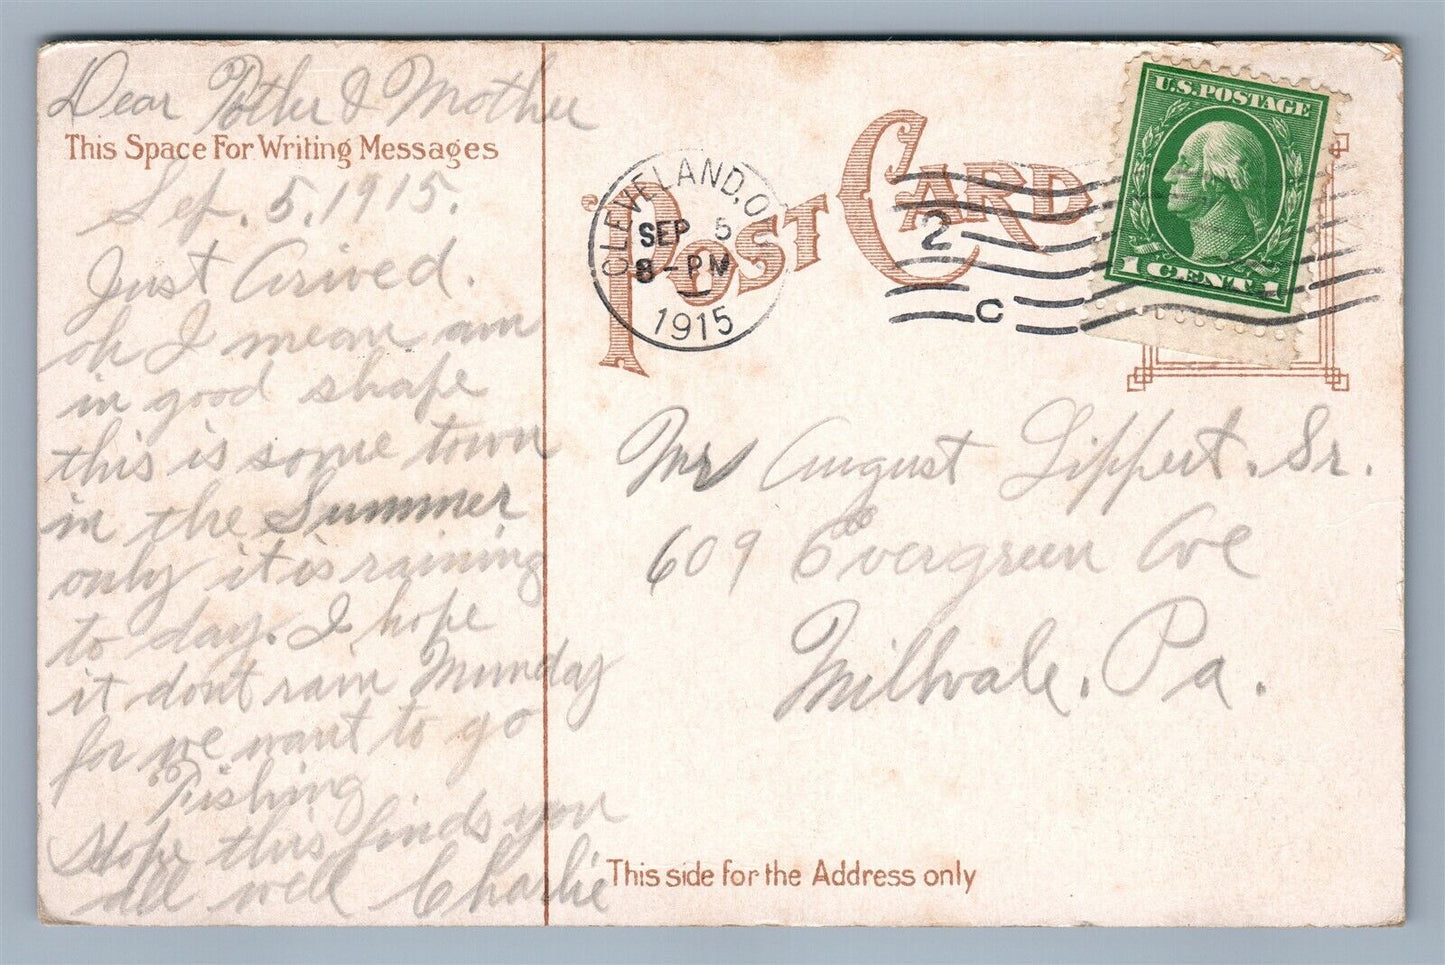 Dear Potler & Mother
This Space For Writing Messages
Sep. 5. 1915.
Just Arived.
oh I mean am
in good shape
this is some town
in the Summer
only it is raining
to day. I hope
it dont rain Munday
for we want to go
Fishing
Hope this finds you
all well Charlie
POST CARD
CLEVELAND, O.
SEP 5
8-PM
1915
2
C
U.S. POSTAGE
1 CENT 1
Mr August Lippert. Sr.
609 Evergreen Ave
Millvale. Pa.
This side for the Address only